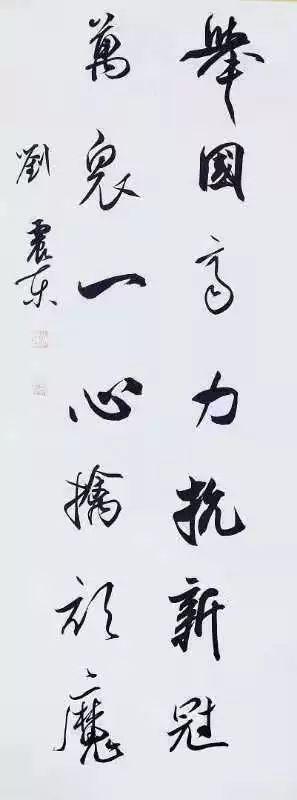 舉國齊力抗新冠
萬衆一心擒頑魔
劉震东